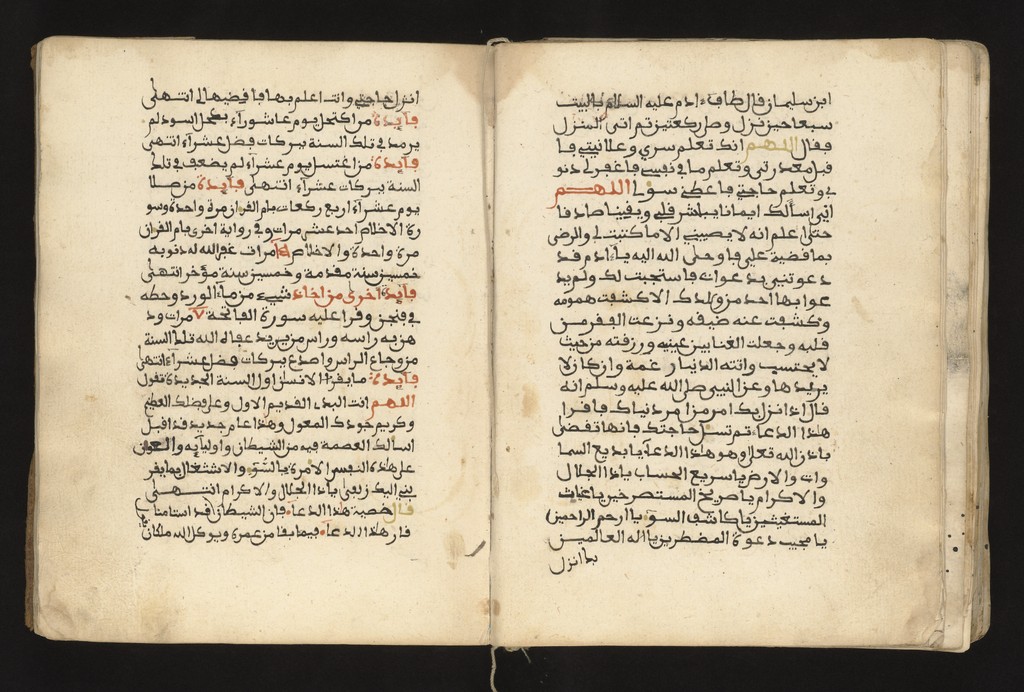 ابن سليمان قال طاف ءادم عليه السلام بالبيت
سبعا حين نزل وصل ركعتين ثم اتى المنزل
فقال اللهم انك تعلم سري وعلانيتي فا
قبل معذرتي وتعلم ما في نفسي فاغفر لي ذنو
بي وتعلم حاجتي فاعطني سولي اللهم
اني اسألك ايمانا يباشر قلبي ويقينا صادقا
حتى اعلم انه لا يصيبني الا ما كتبت لي والرضى
بما قضيت علي فاوحى الله اليه يا ءادم قد
دعوتني بدعوات فاستجبت لك ولم يد
عوا بها احد من ولدك الا كشفت همومه
وكشفت عنه ضيقه ونزعت الفقر من
قلبه وجعلت الغنا بين عينيه ورزقته من حيث
لا يحتسب واتته الدنيا رغمة وان كان لا
يريدها وعن النبيي صلى الله عليه وسلم انه
قال اذا نزل بك امر من امر دنياك فاقرا
هذا الدعاء ثم تسل حاجتك فانها تقضى
باذن الله تعلى وهو هذا الدعاء يا بديع السما
وات والارض يا سريع الحساب ياذا الجلال
والاكرام يا صريخ المستصرخين يا غياث
المستغيثين يا كاشف السوء يا ارحم الراحمين
يا مجيب دعوة المضطرين يا اله العالمين
بك انزل
انزل حاجتي وانت اعلم بها فاقضيها لي انتهى
فايدة من اكتحل يوم عاشوراء بكحل اسود لم
يرمد في تلك السنة ببركات فضل عشراء انتهى
فايدة من اغتسل يوم عشراء لم يضعف في تلك
السنة ببركات عشراء انتهى فايدة من صلا
يوم عشراء اربع ركعات بام القران مرة واحدة وسو
رة الاخلاص احد عشر مرات وفي رواية اخرى بام القران
مرة واحدة والاخلاص مرات غفر الله له ذنوبه
خمسين سنة مقدمة وخمسين سنة مؤخر انتهى
فايدة اخرى من اخذ شيء من ماء الورد وحطه
في فنجن وقرا عليه سورة الفاتحة ٧ مرات ود
هن به راسه وراس من يريد عفاه الله تلك السنة
من وجاع الراس واصدع ببركات فضل عشراء انتهى
فايدة ما يقرا الانسن اول السنة الجديدة تقول
اللهم انت البدء القديم الاول وعلى فضلك العظيم
وكريم جودك المعول وهذا عام جديد قد اقبل
اسالك العصمة فيه من الشيطان واوليآيه والعون
على هذه النفس الامرة بالسوء والاشتغال بما يقر
بني اليك زلفى ياذا الجلال والاكرام انتهى
قال خصية هذا الدعاء فان الشيطان قد استامن
قار هذا الدعاء فيما بقا من عمره ويوكل الله ملكان